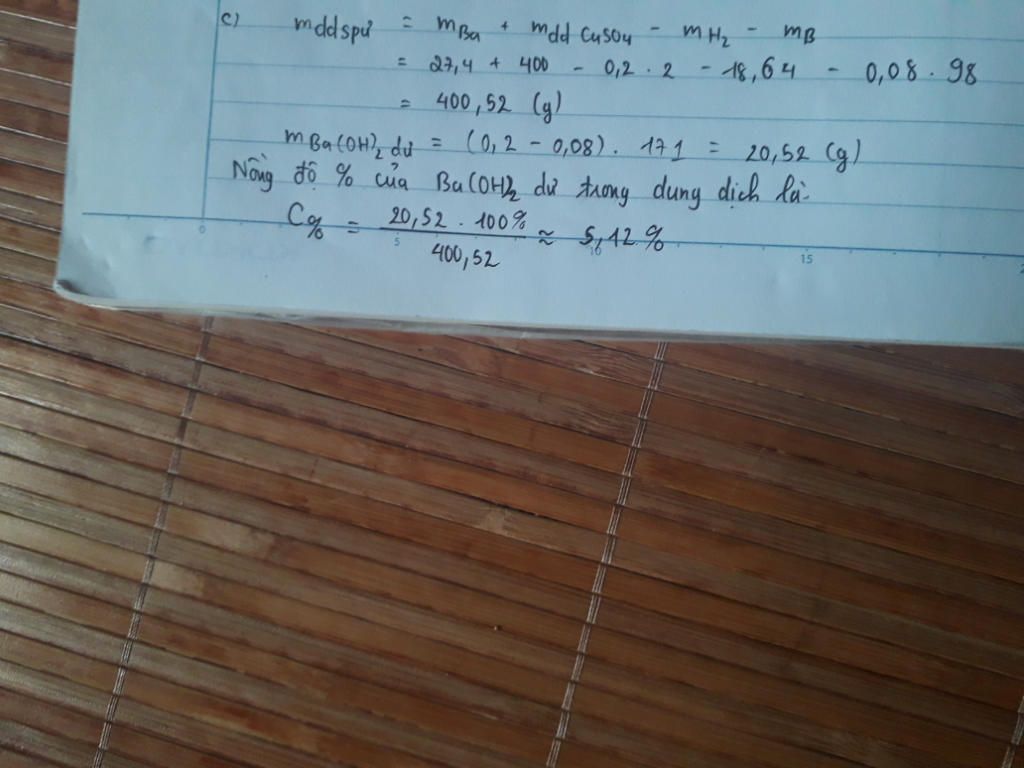 c) mddspứ = mBa + mdd CuSO4 - mH2 - mB
= 27,4 + 400 - 0,2 . 2 - 18,64 - 0,08 . 98
= 400,52 (g)
mBa(OH)2 dư = (0,2 - 0,08) . 171 = 20,52 (g)
Nồng độ % của Ba(OH)2 dư trong dung dịch là:
C% = 20,52 . 100% / 400,52 ≈ 5,12%
0 5 10 15